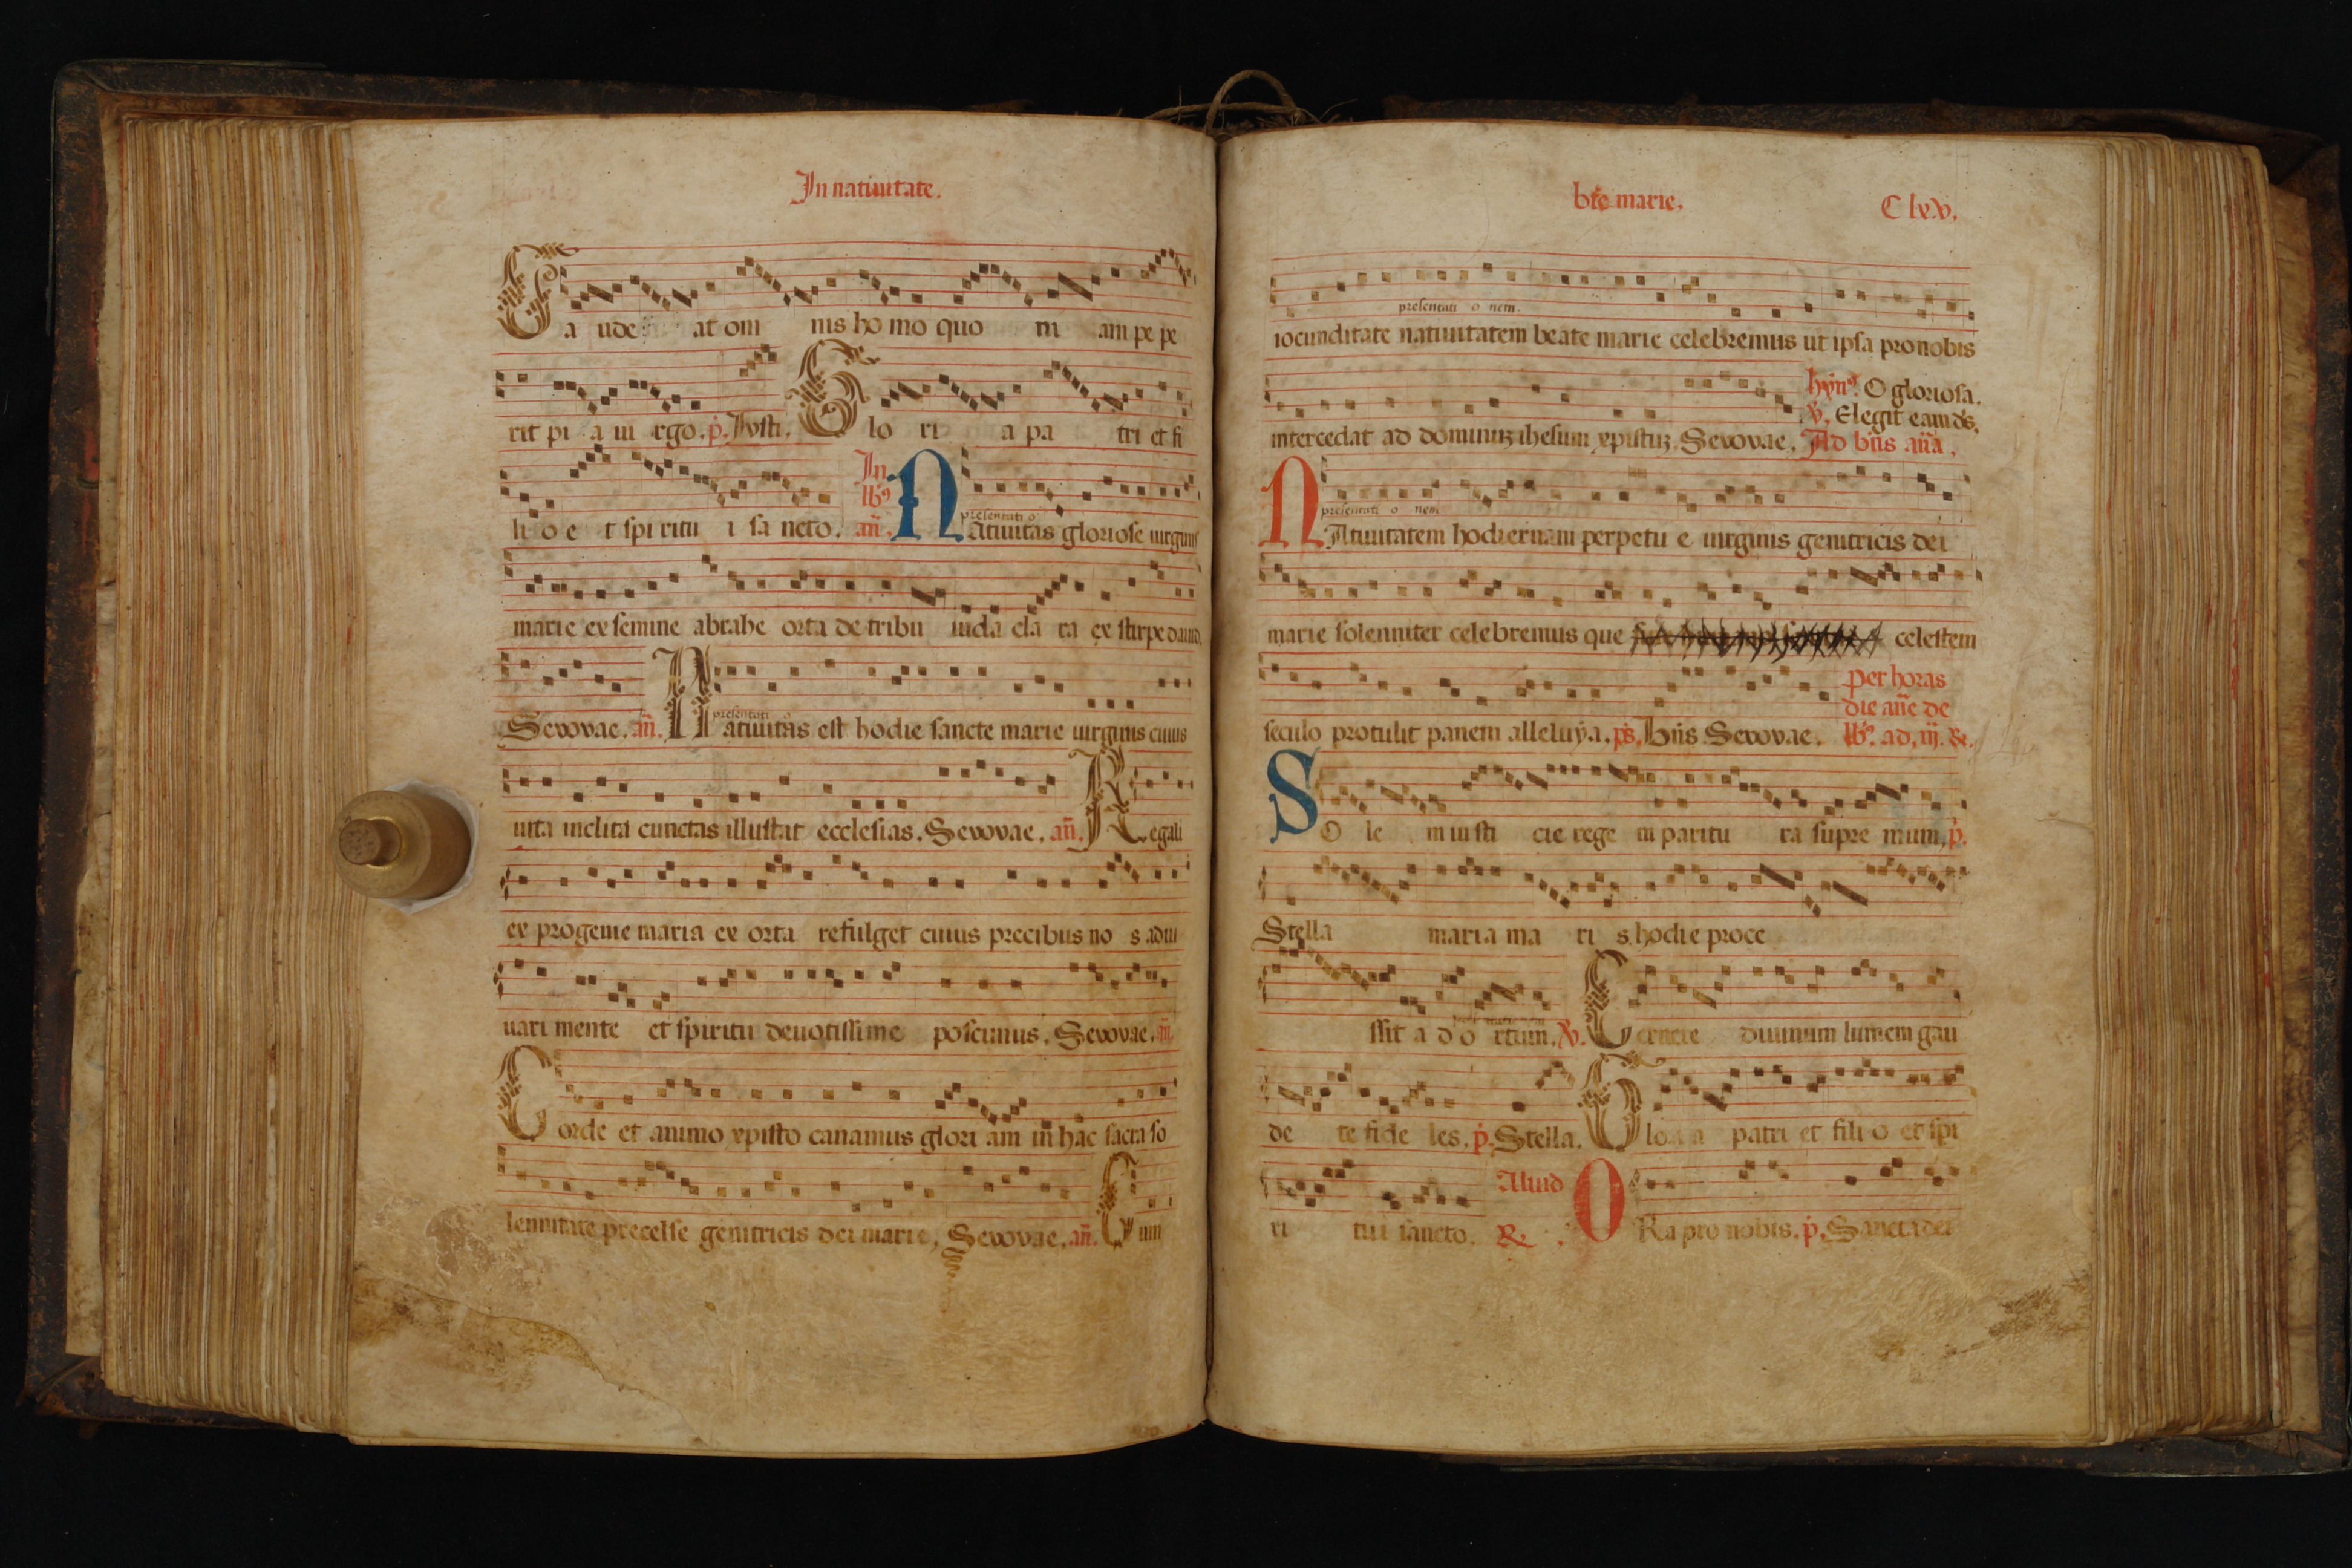 In natiuitate.
Ga ude at om nis ho mo quo ni am pe pe
rit pi a ui rgo. p̄. Iusti. G lo ri a pa tri et fi
li o e t spi ritu i sa ncto. In lb⁹ añ. presentati o Natiuitas gloriose uirginis
marie ex semine abrahe orta de tribu iuda cla ra ex stirpe dauid.
Seuouae. añ. presentati o Natiuitas est hodie sancte marie uirginis cuius
uita inclita cunctas illustrat ecclesias. Seuouae. añ. Regali
ex progenie maria ex orta refulget cuius precibus no s adiu
uari mente et spiritu deuotissime poscimus. Seuouae. añ.
Corde et animo xpisto canamus glori am in hac sacra so
lennitate precelse genitricis dei marie, Seuouae, añ. Cum
bt̄e marie. C lxv.
presentati o nem.
iocunditate natiuitatem beate marie celebremus ut ipsa pro nobis
hyn⁹. O gloriosa.
v̄. Elegit eam d̄s.
intercedat ad dominuʒ ihesum xpistuʒ. Seuouae. Ad bñs aña.
presentati o nem
NAtiuitatem hodiernam perpetu e uirginis genitricis dei
marie solenniter celebremus que celestem
per horas
die añe de
seculo protulit panem alleluya. p̄s. Bñs Seuouae. lb⁹. ad. iij. R̄.
SO le m iusti cie rege m paritu ra supre mum, p̄.
Stella maria ma ri s hodie proce
ssit a d o rtum. v̄. Cernere diuinum lumem gau
de te fide les. p̄. Stella. Glo ri a patri et fili o et spi
ri tui sancto. Aliud R̄. ORa pro nobis. p̄. Sancta dei